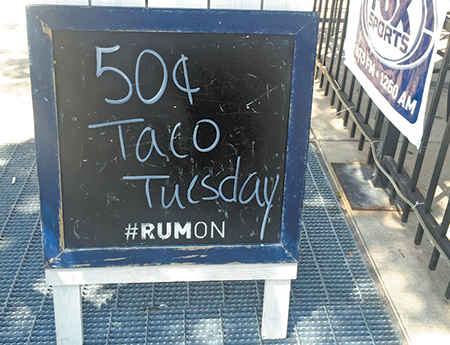 50¢
Taco
Tuesday
#RUMON
FOX
SPORTS
1260 AM